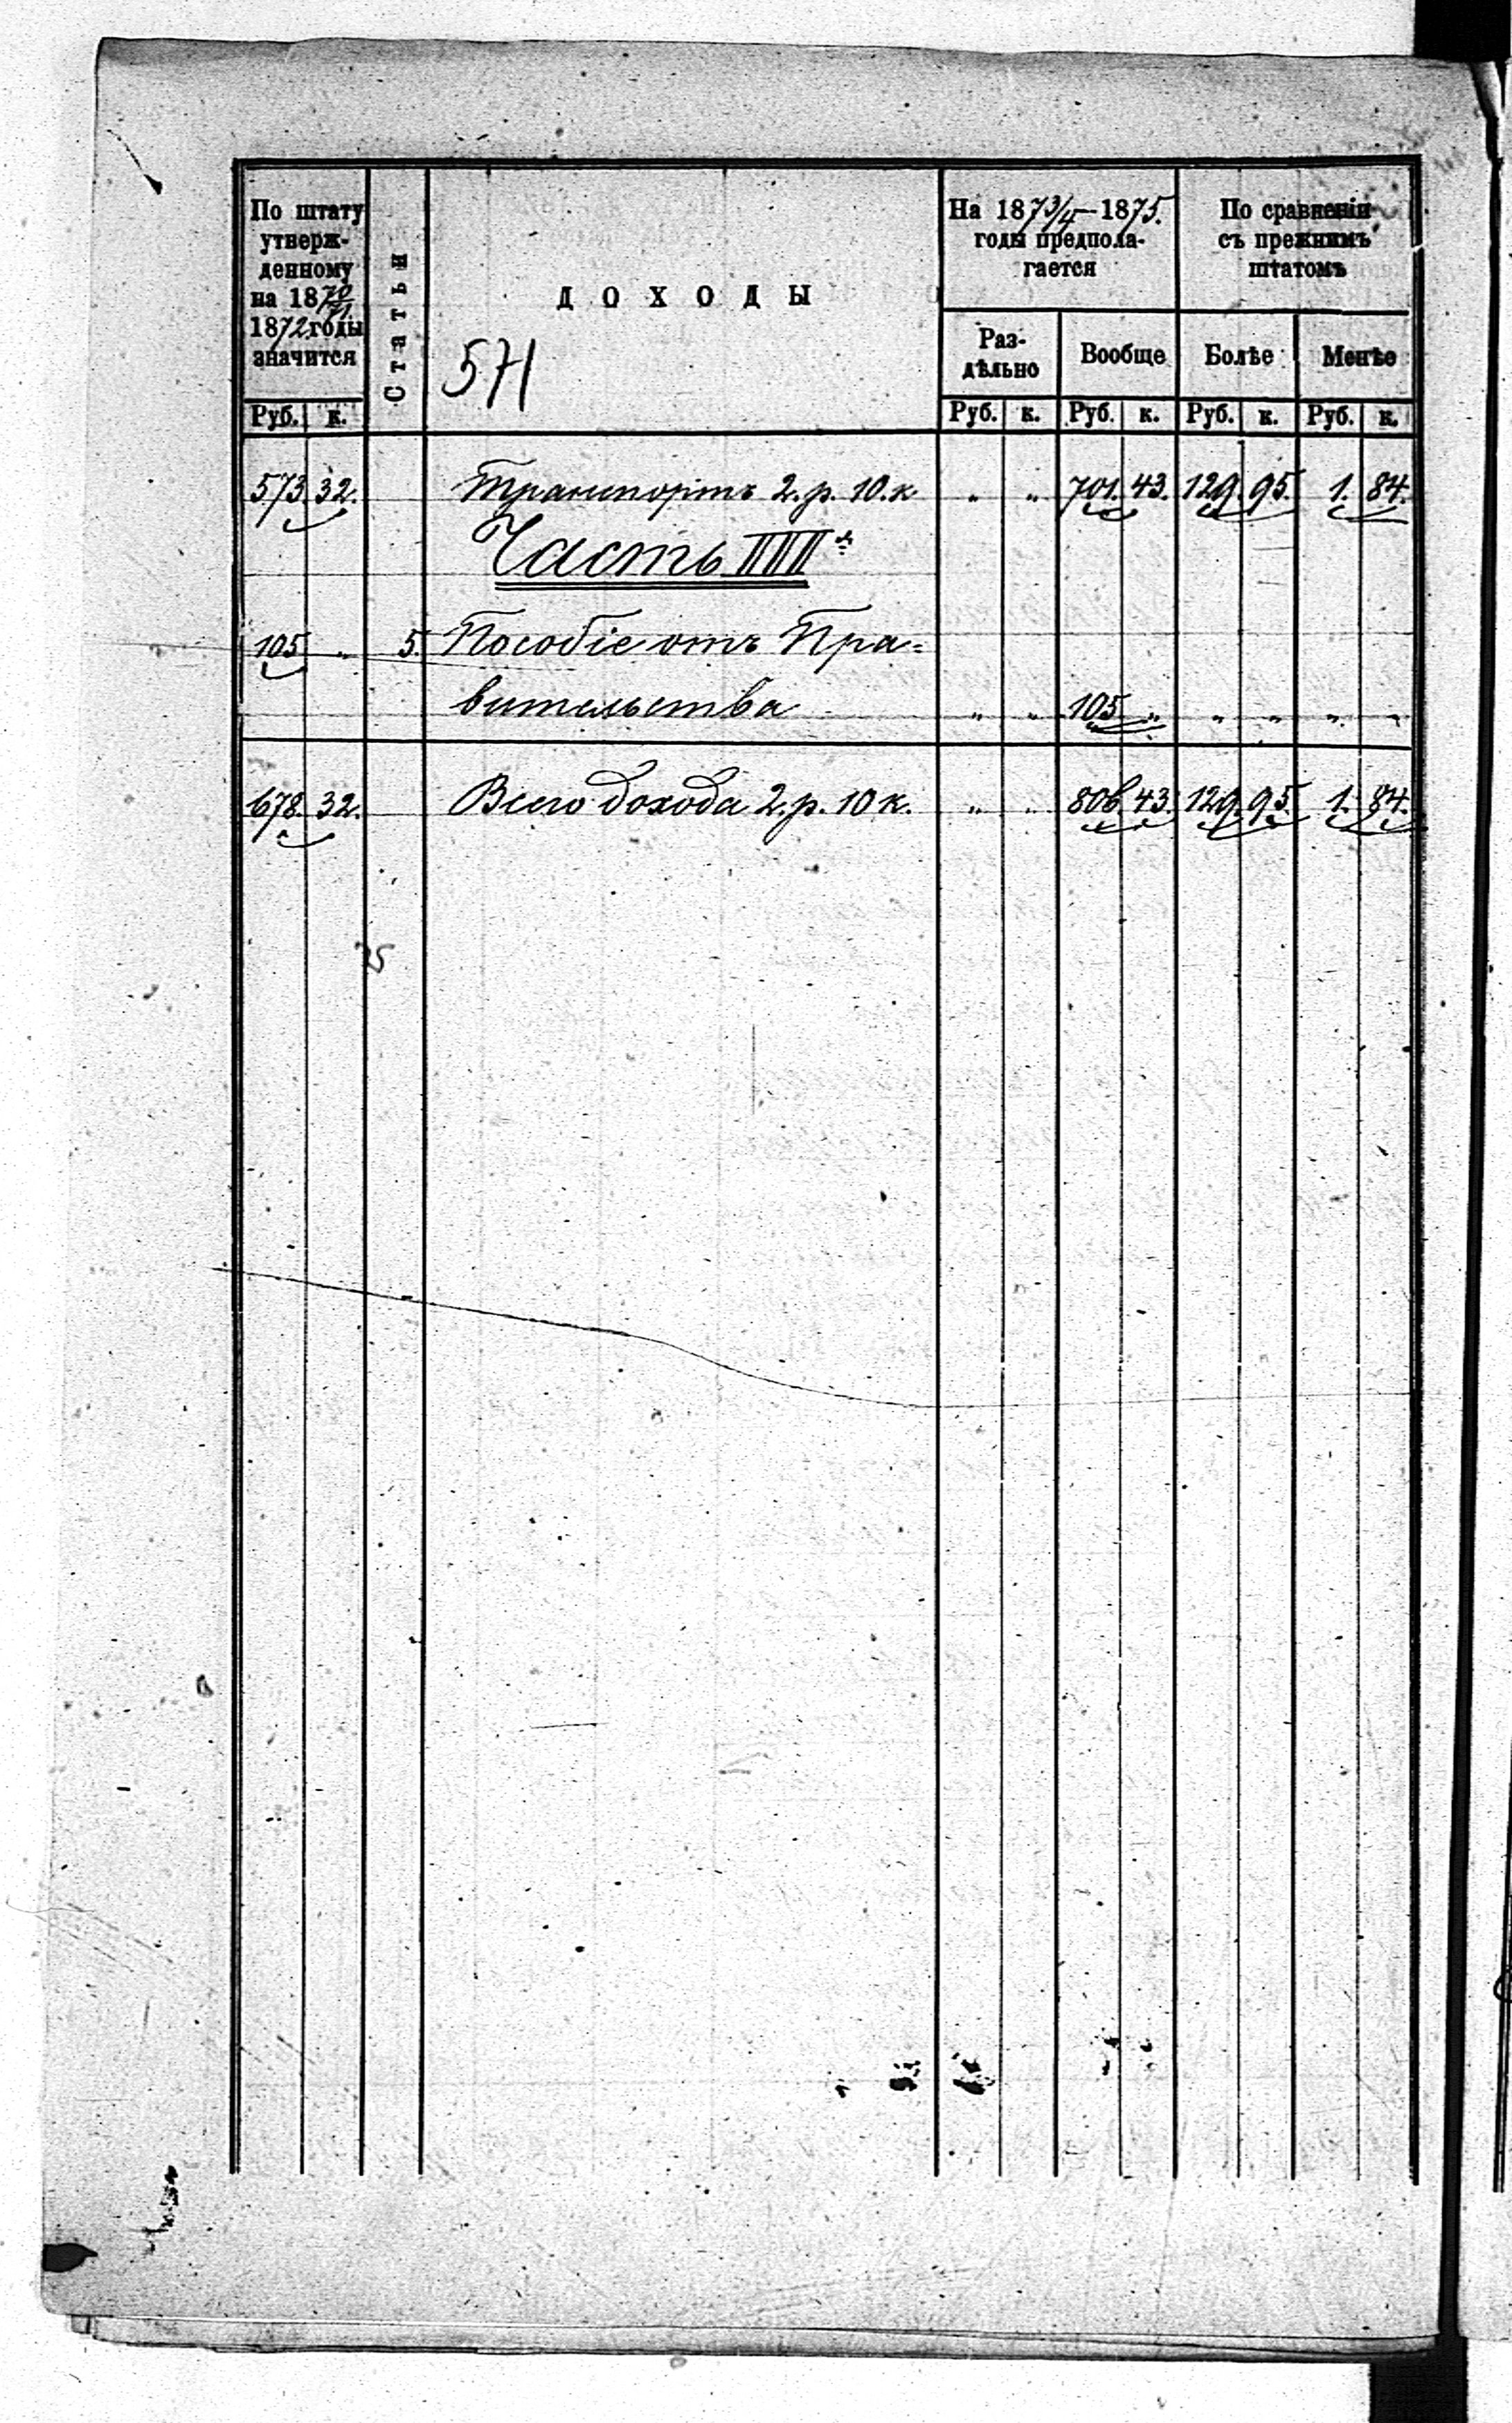 По штату
утверж-
денному
на 1870/71
1872 годы
значится
Статьи
ДОХОДЫ
571
На 1873/4–1875.
годы предпола-
гается
По сравненію
съ прежнимъ
штатомъ
Раз-
дѣльно
Вообще
Болѣе
Менѣе
Руб. к. Руб. к. Руб. к. Руб. к. Руб. к.
573. 32. Транспортъ 2. р. 10. к. " " 701. 43. 129. 95. 1. 84.
Часть IIIя
105 " 5. Пособіе отъ Пра=
вительства " " 105 " " " " "
678. 32. Всего дохода 2. р. 10 к. " " 806. 43. 129. 95. 1. 84.